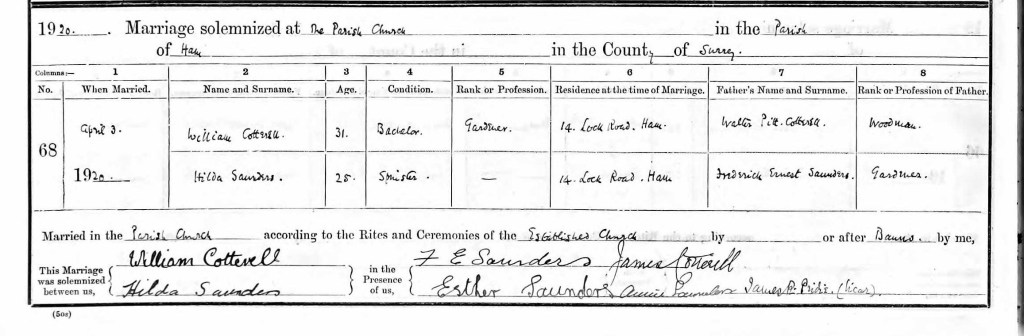 1920. Marriage solemnized at The Parish Church in the Parish
of Ham in the County of Surrey.
Columns:— 1 2 3 4 5 6 7 8
No. When Married. Name and Surname. Age. Condition. Rank or Profession. Residence at the time of Marriage. Father's Name and Surname. Rank or Profession of Father.
68
April 3. William Cotterell. 31. Bachelor. Gardener. 14. Lock Road. Ham. Walter Pitt Cotterell. Woodman.
1920. Hilda Saunders. 25. Spinster. — 14. Lock Road. Ham Frederick Ernest Saunders. Gardener.
Married in the Parish Church according to the Rites and Ceremonies of the Established Church by or after Banns. by me,
This Marriage was solemnized between us, William Cotterell Hilda Saunders
in the Presence of us, F E Saunders James Cotterell
Esther Saunders Annie Saunders James (Vicar)
(508)